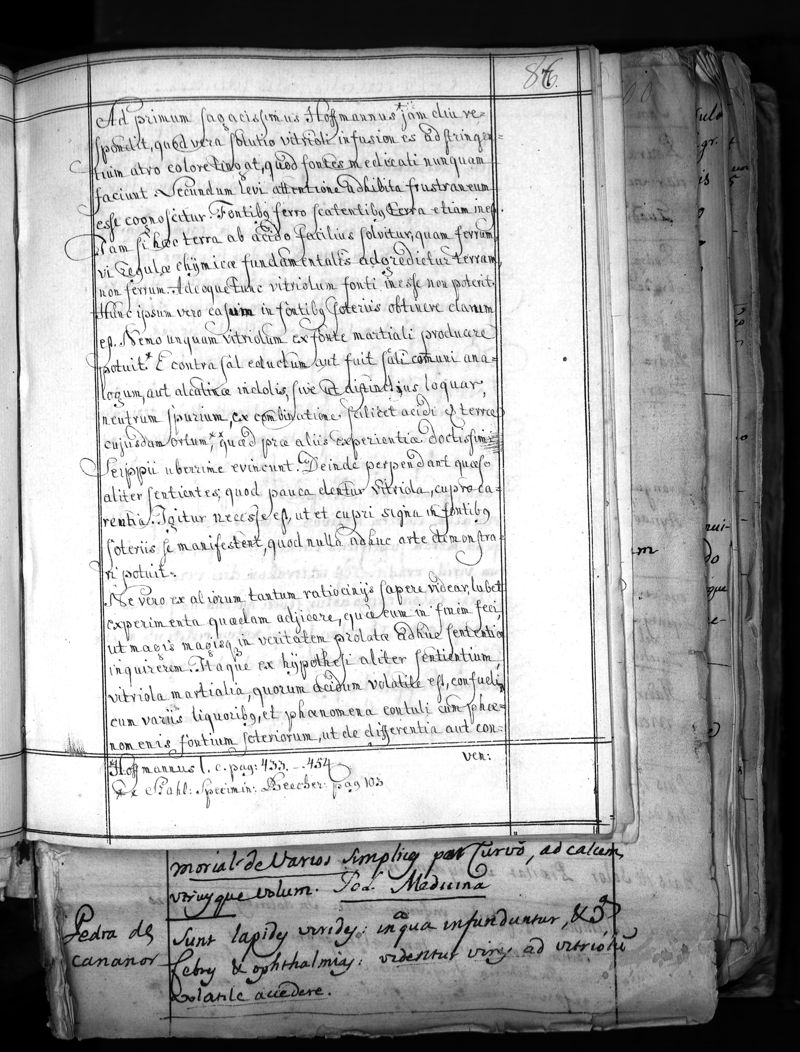 86.
Ad primum sagacissimus Hoffmannus* jam diu re=
spondit, quod vera solutio vitrioli infusiones adstringen=
tium atro colore tingat, quod fontes medicati nunquam
faciunt. Secundum levi attentione adhibita frustraneum
esse cognoscitur. Fontibq ferro scatentibq terra etiam inest.
Nam si hæc terra ab acido facilius solvitur, quam ferrum,
vi regulæ chÿmicæ fundamentalis adgredietur terram,
non ferrum. Adeoque tunc vitriolum fonti inesse non poterit.
Hunc ipsum vero casum in fontibq soteriis obtinere clarum
est. Nemo unquam vitriolum ex fonte martiali producere
potuit.* E contra sal eductum aut fuit sali comuni ana=
logum, aut alcalinæ indolis, sive ut distinctius loquar,
neutrum spurium, ex combinatione scilicet acidi & terræ
cujusdam ortum,** quod præ aliis experientiæ doctissimi
Serppii uberrime evincunt. Deinde perpendant quæso
aliter sentientes, quod pauca dentur vitriola, cupro ca=
rentia. Igitur necesse est, ut et cupri signa in fontibq
soteriis se manifestent, quod nulla adhuc arte demonstra=
ri potuit.
Ne vero ex aliorum tantum ratiociniis sapere videar, lubet
experimenta quædam adjicere, quæ eum in finem feci,
ut magis magisq in veritatem prolatæ adhuc sententiæ
inquirerem. Itaque ex hÿpothesi aliter sentientium,
vitriola martialia, quorum acidum volatile est, confudi
cum variis liquoribq, et phœnomena contuli cum phœ=
nomenis fontium soteriorum, ut de differentia aut con=
ven:
Hoffmannus l. c. pag: 433. - 454
** Stahl: Specimin: Beecher: pag 103
morial de Varios Simplices par Curvo, ad calcem
utriusque volum. Medicina
Pedra de
cananor
Sunt lapides virides: in aqua infunduntur, &
febry & ophthalmias: videntur vires ad vitriolũ
volatile accedere.